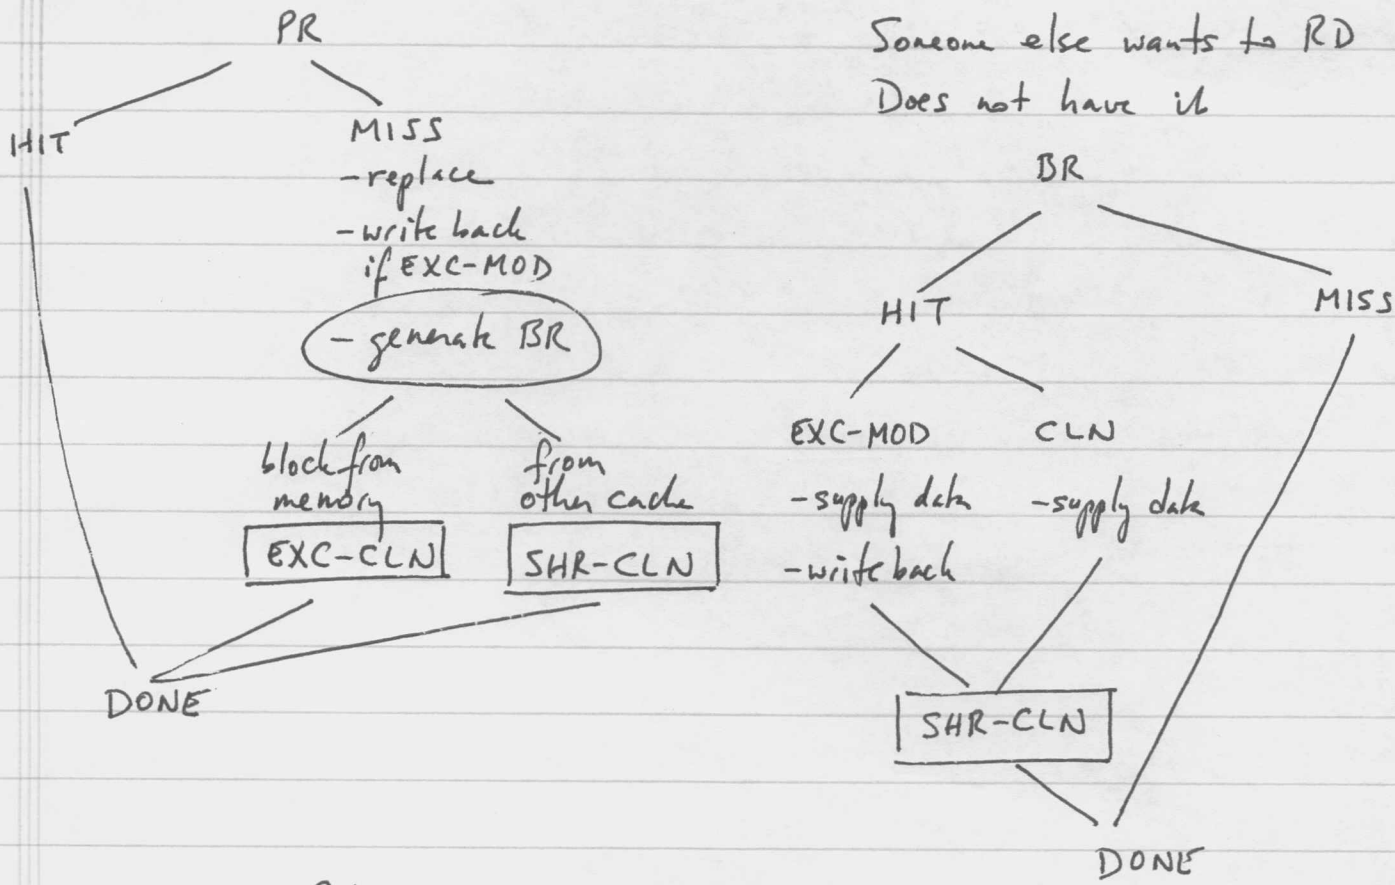 PR
HIT
MISS
-replace
-write back
if EXC-MOD
- generate BR
block from
memory
EXC-CLN
from
other cache
SHR-CLN
DONE
Someone else wants to RD
Does not have it
BR
HIT
MISS
EXC-MOD
-supply data
-write back
CLN
-supply data
SHR-CLN
DONE